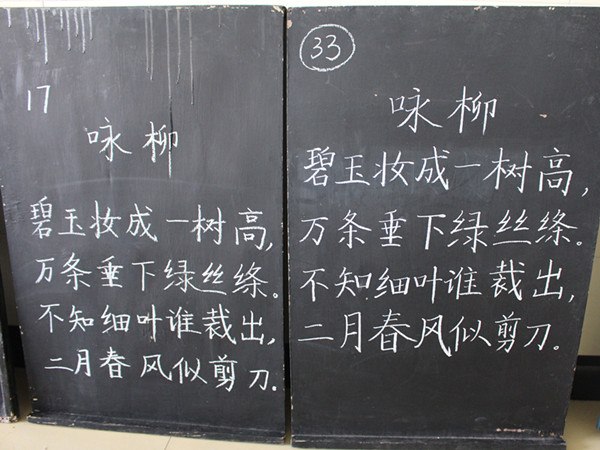 17
咏柳
碧玉妆成一树高,
万条垂下绿丝绦。
不知细叶谁裁出,
二月春风似剪刀.
33
咏柳
碧玉妆成一树高,
万条垂下绿丝绦.
不知细叶谁裁出,
二月春风似剪刀.